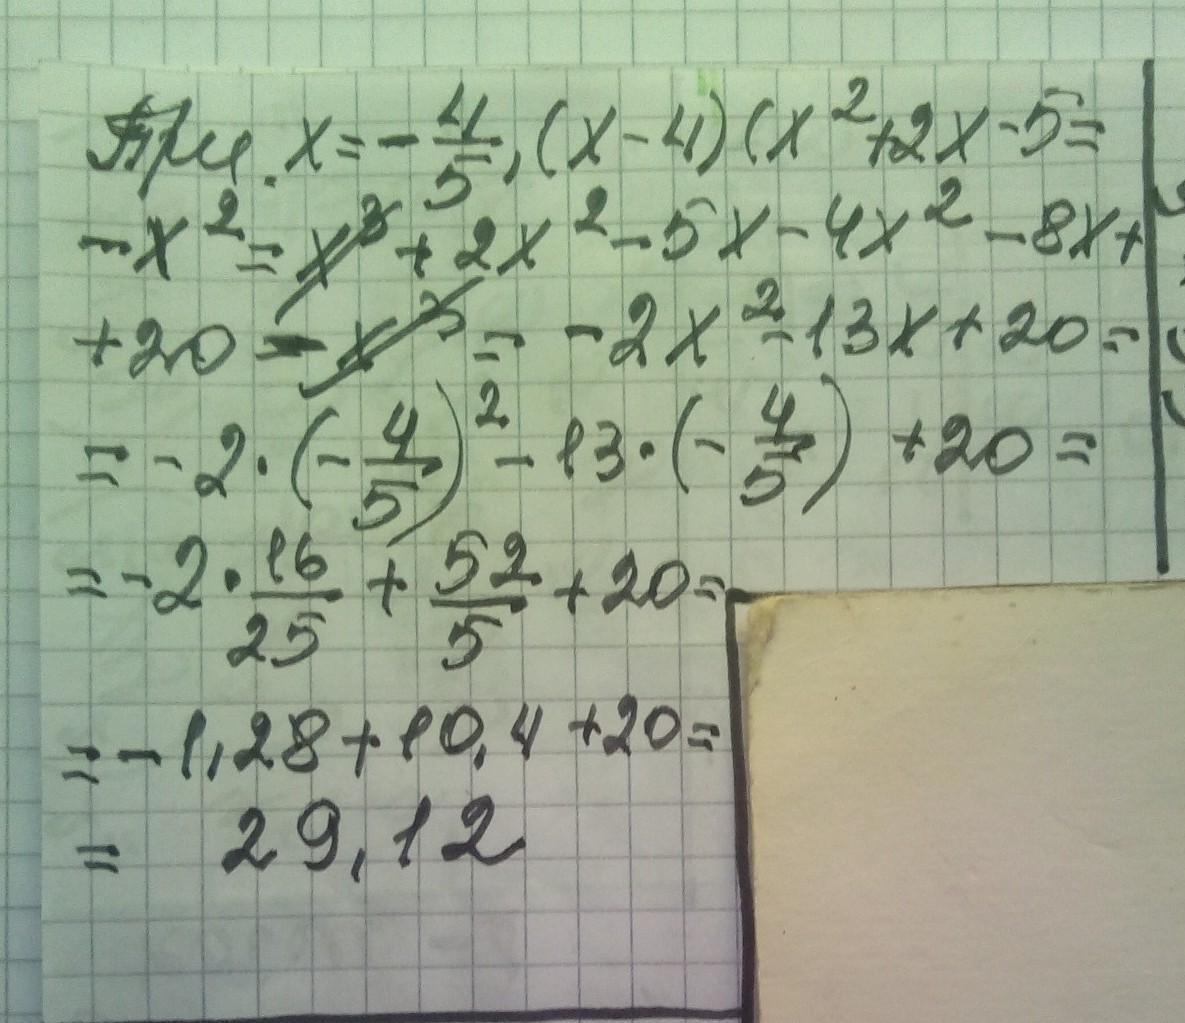 При. x = -4/5, (x-4)(x²+2x-5=
-x²= x³+2x²-5x-4x²-8x+
+20 - x³ = -2x²-13x+20=
= -2·(-4/5)² - 13·(-4/5) +20=
= -2·16/25 + 52/5 +20=
= -1,28+10,4+20=
= 29,12